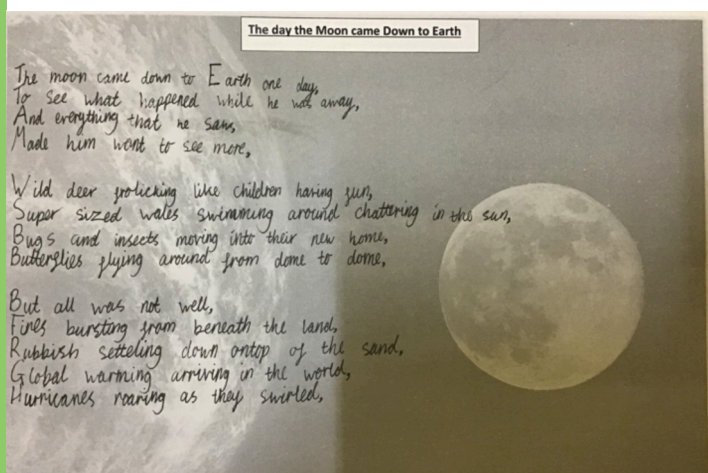 The day the Moon came Down to Earth
The moon came down to Earth one day,
To see what happened while he was away,
And everything that he saw,
Made him want to see more,
Wild deer frolicking like children having fun,
Super sized wales swimming around chattering in the sun,
Bugs and insects moving into their new home,
Butterflies flying around from dome to dome,
But all was not well,
Fires bursting from beneath the land,
Rubbish setteling down ontop of the sand,
Global warming arriving in the world,
Hurricanes roaring as they swirled,